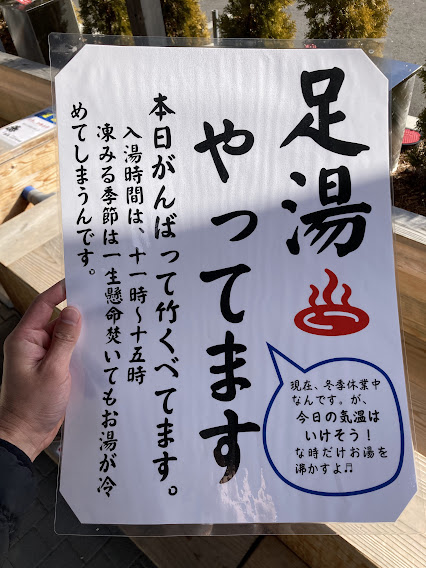 足湯
やってます
本日がんばって竹くべてます。
入湯時間は、十一時～十五時
凍みる季節は一生懸命焚いてもお湯が冷
めてしまうんです。
現在、冬季休業中
なんです。が、
今日の気温は
いけそう！
な時だけお湯を
沸かすよ♬